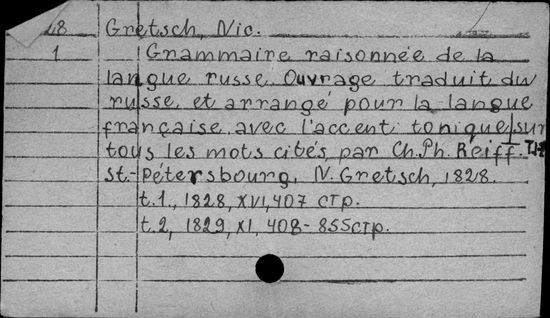 28 Gretsch, Nic.
1 Grammaire raisonnée de la
langue russe. Ouvrage traduit du
russe et arrangé pour la langue
française, avec l'accent tonique sur
tous les mots cités, par Ch. Ph. Reiff.
St.-Pétersbourg, N. Gretsch, 1828.
t.1., 1828, XVI, 407 стр.
t.2, 1829, XI, 408-855 стр.